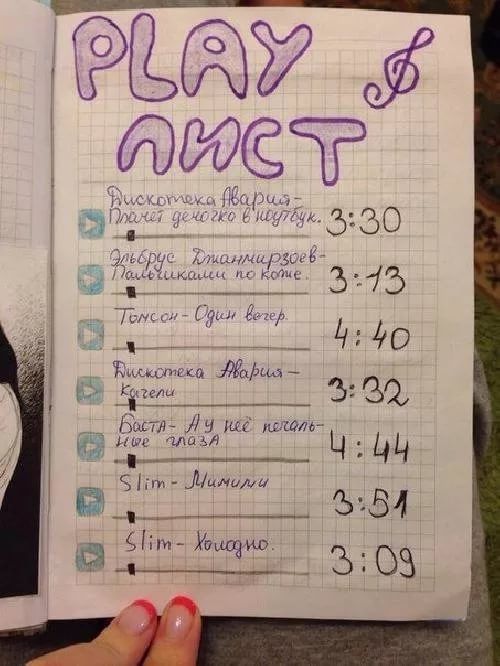 PLAY
ЛИСТ
Дискотека Авария-
Плачет девочка в ноутбук. 3:30
Эльбрус Джанмирзоев-
Пальчиками по коже. 3:13
Томсон-Один вечер. 4:40
Дискотека Авария-
Качели 3:32
Баста- А у неё печаль-
ные глаза 4:44
Slim- Мимими 3:51
Slim- Холодно. 3:09